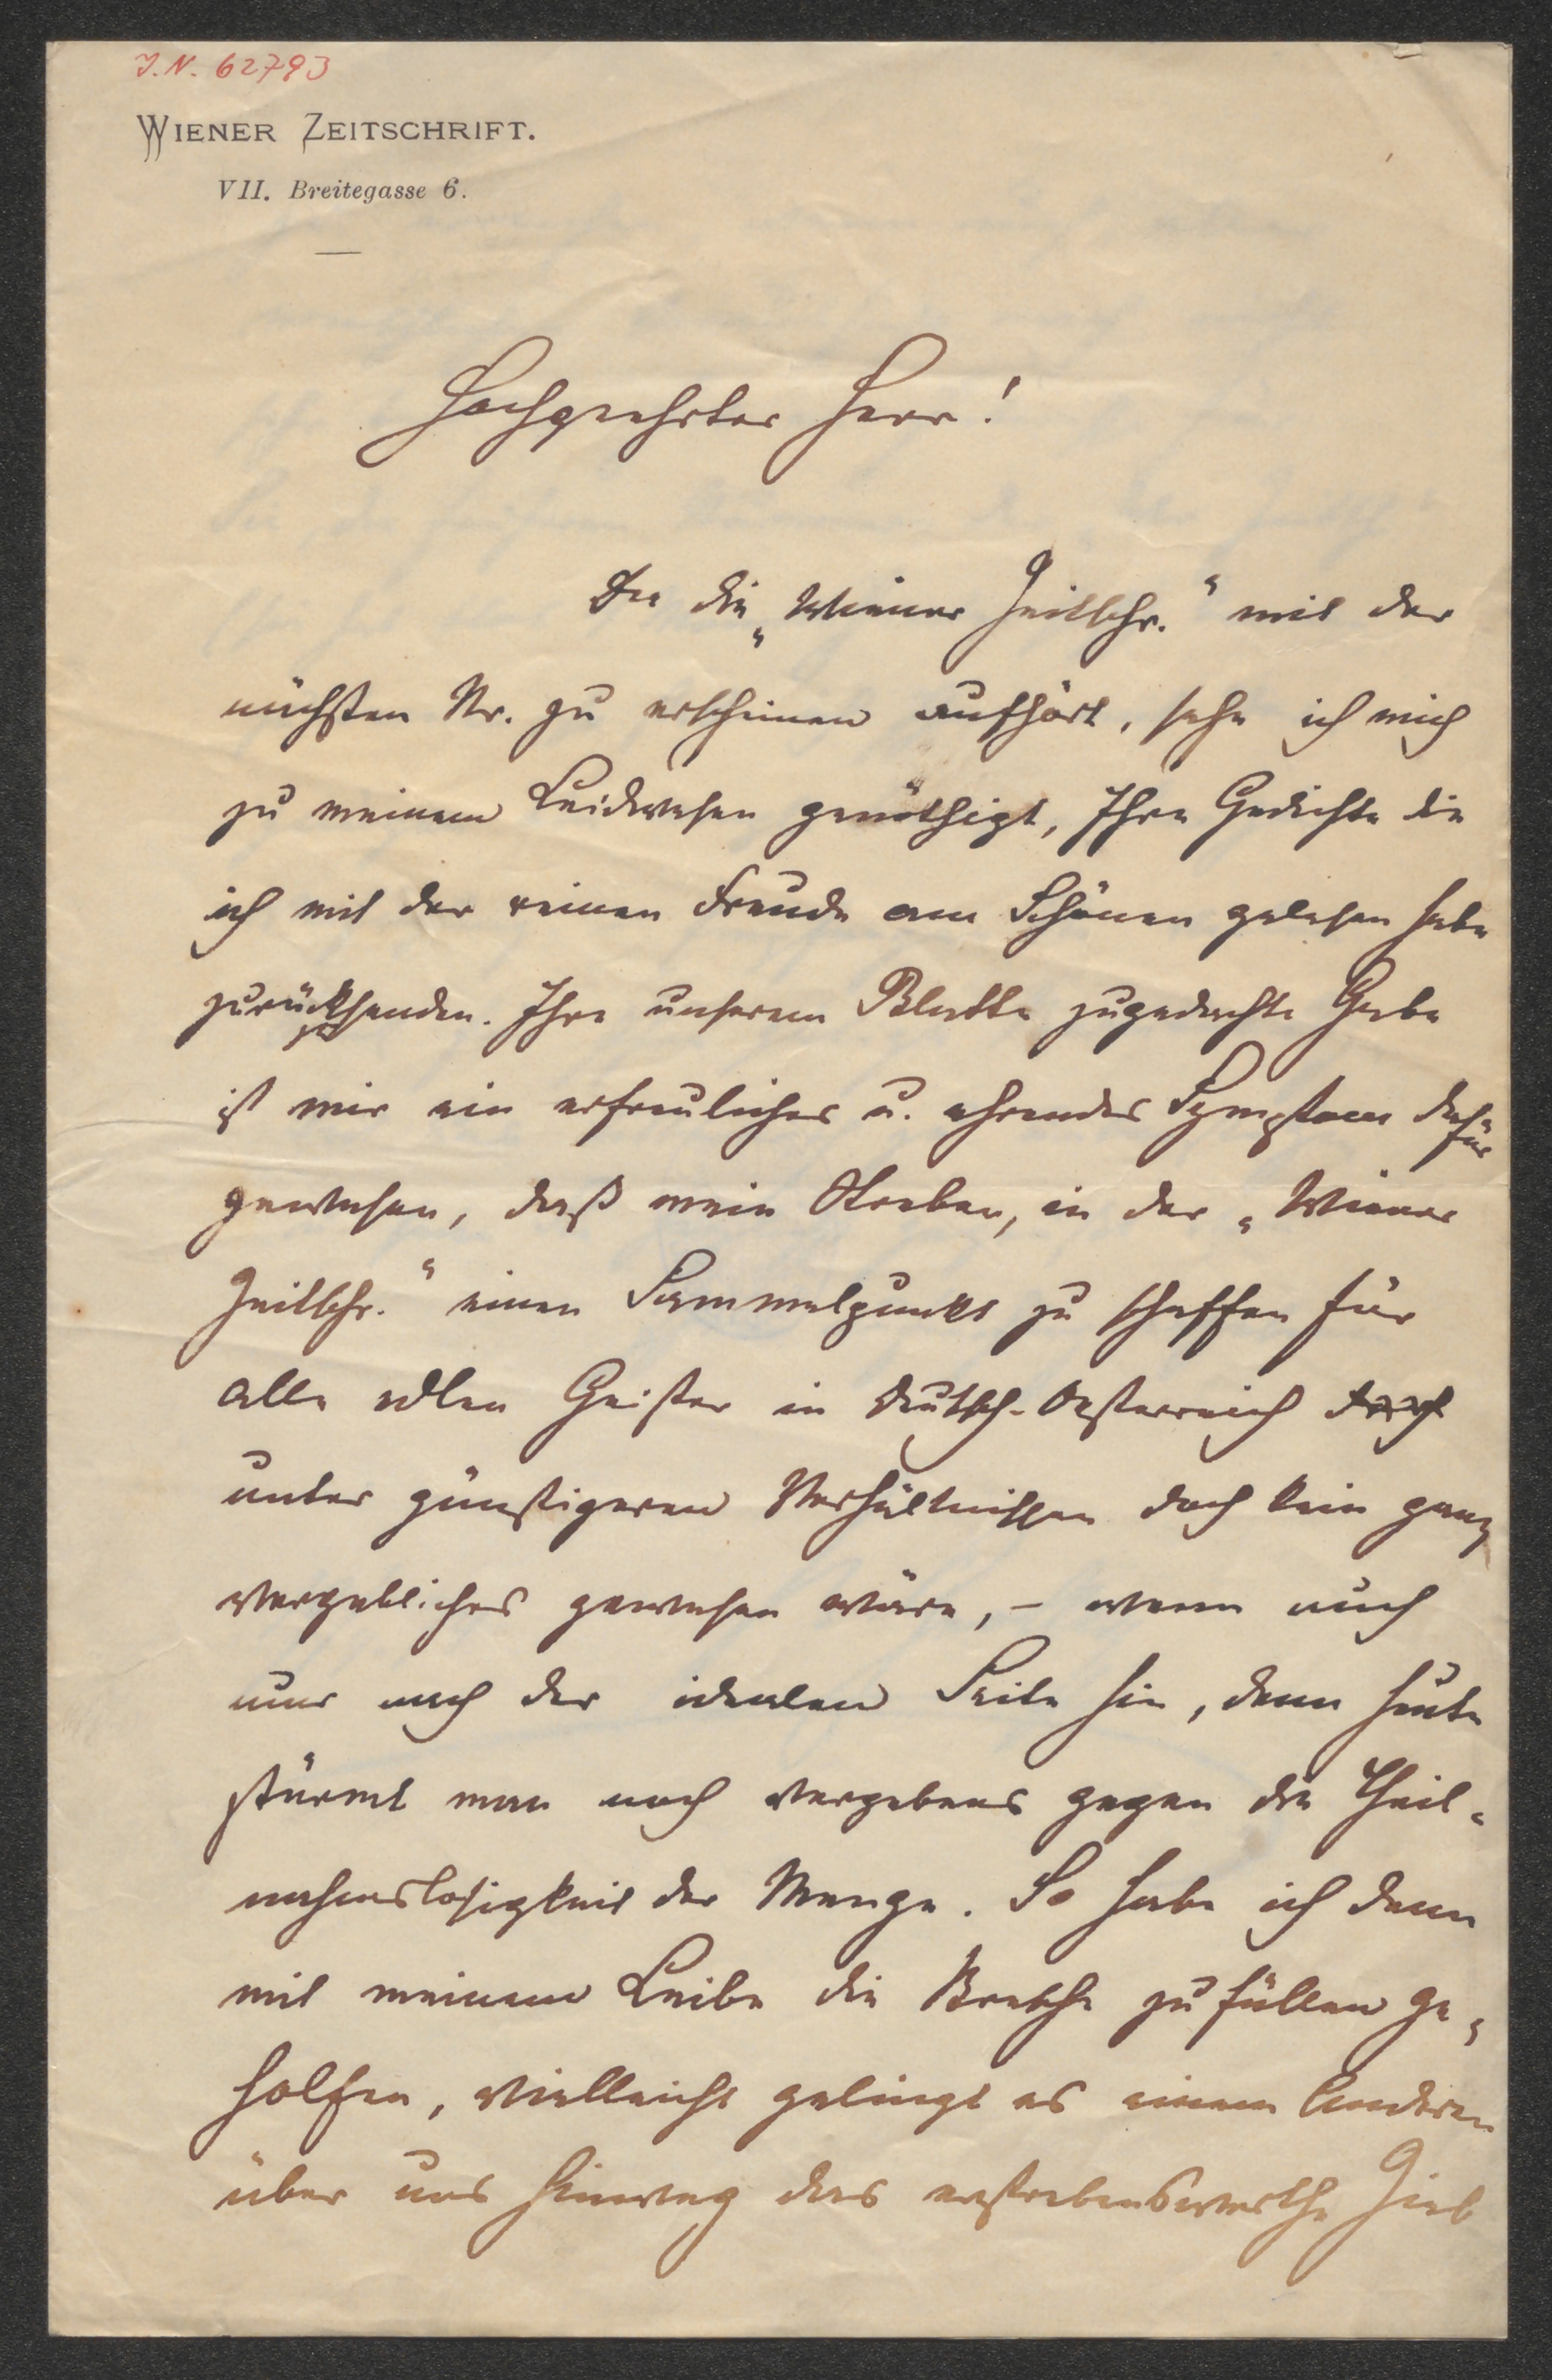 J.N. 62793
WIENER ZEITSCHRIFT.
VII. Breitegasse 6.
Hochgeehrter Herr!
Da die „Wiener Zeitschr.“ mit der
nächsten Nr. zu erscheinen aufhört, sehe ich mich
zu meinem Leidwesen genöthigt, Ihre Gedichte die
ich mit der reinen Freude am Schönen gelesen habe
zurückzusenden. Ihre unserem Blatte zugedachte Gabe
ist mir ein erfreuliches u. ehrendes Symptom dafür
gewesen, daß mein Streben, in der „Wiener
Zeitschr.“ einen Sammelpunkt zu schaffen für
alle edlen Geister in Deutsch-Oesterreich doch
unter günstigeren Verhältnissen doch kein ganz
vergebliches gewesen wäre, – wenn auch
nur nach der idealen Seite hin, denn heute
stürmt man noch vergebens gegen die Theil-
nahmslosigkeit der Menge. So habe ich denn
mit meinem Leibe die Bresche zu füllen ge-
holfen, vielleicht gelingt es einem Anderen
über uns hinweg das erstrebenswerthe Ziel